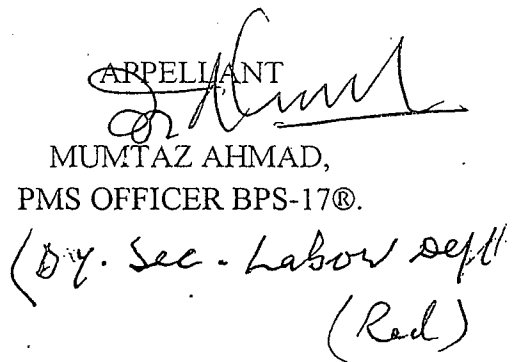 APPELLANT
MUMTAZ AHMAD,
PMS OFFICER BPS-17®.
(Dy. Sec. Labour Deptt
(Red)